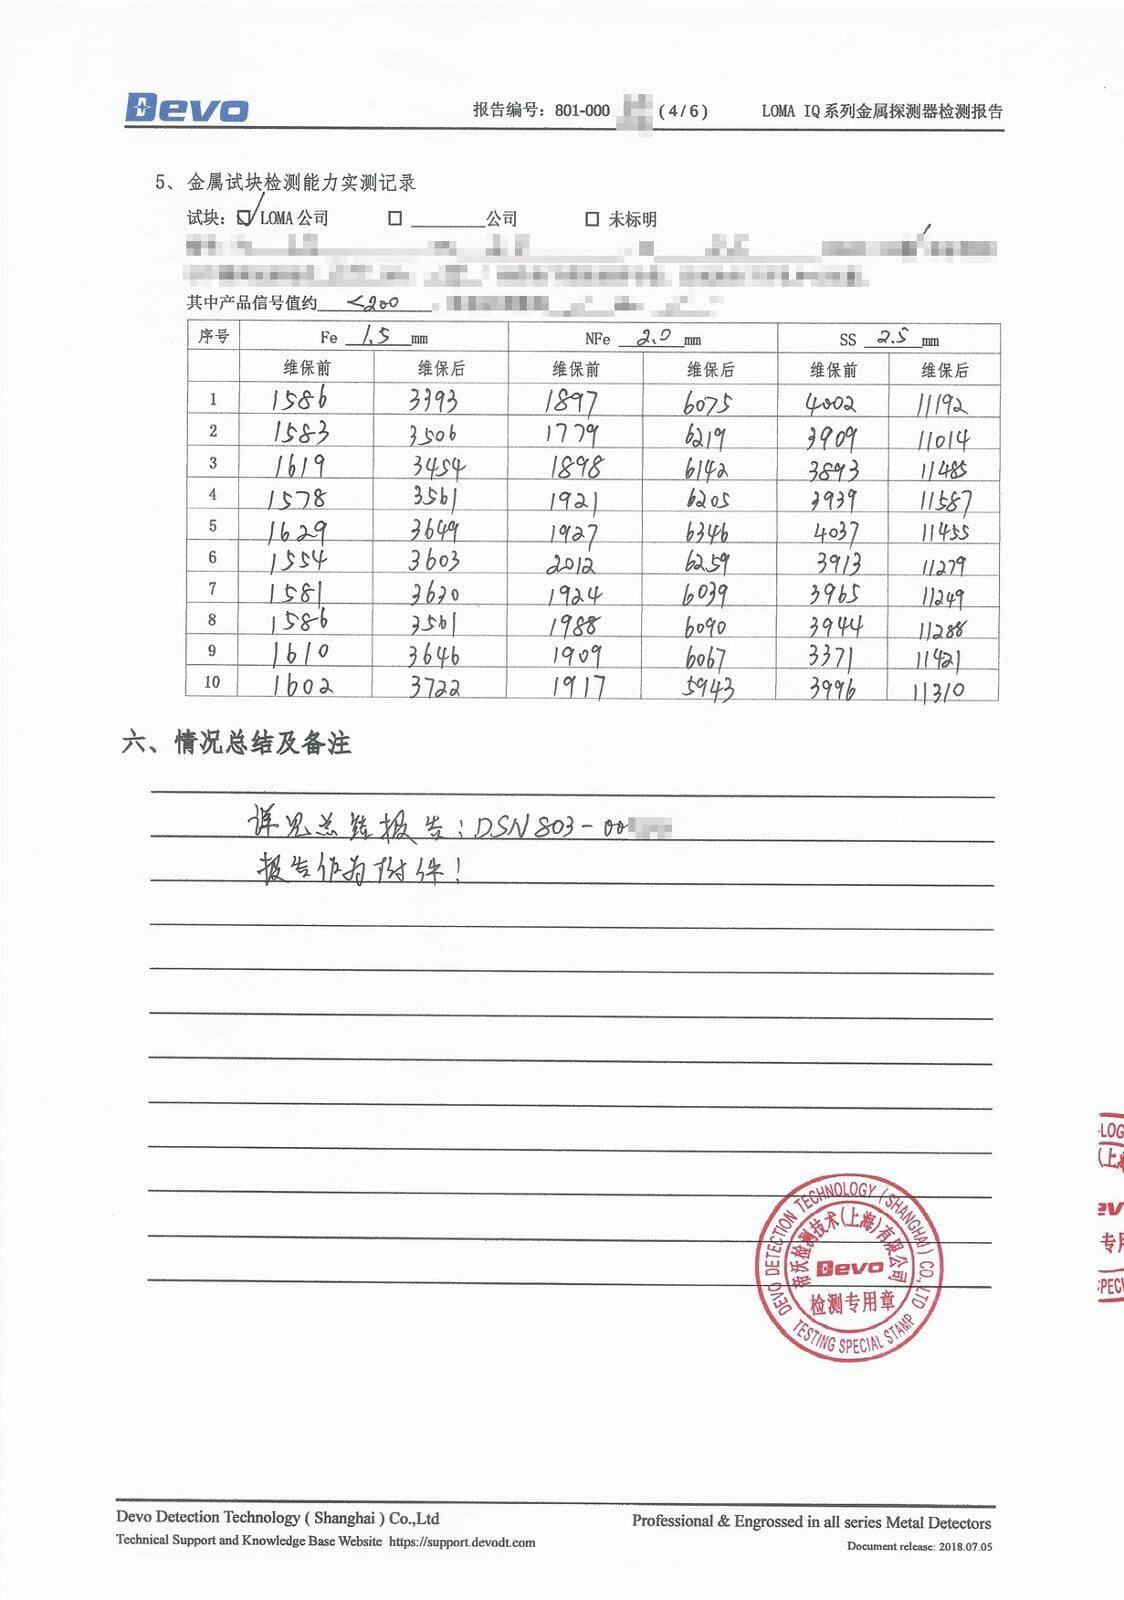 Devo 报告编号：801-000 (4/6) LOMA IQ 系列金属探测器检测报告
5、金属试块检测能力实测记录
试块：☑ LOMA 公司 □ ________公司 □ 未标明
其中产品信号值约 <200
序号 Fe 1.5 mm NFe 2.0 mm SS 2.5 mm
维保前 维保后 维保前 维保后 维保前 维保后
1 1586 3393 1897 6075 4002 11192
2 1583 3506 1779 6219 3909 11014
3 1619 3454 1898 6142 3893 11485
4 1578 3561 1921 6205 3939 11587
5 1629 3649 1927 6346 4037 11455
6 1554 3603 2012 6259 3913 11279
7 1581 3620 1924 6039 3965 11249
8 1586 3561 1988 6090 3944 11288
9 1610 3646 1909 6067 3371 11421
10 1602 3722 1917 5943 3996 11310
六、情况总结及备注
详见总结报告：DSN803-00
报告作为附件！
DEVO DETECTION TECHNOLOGY (SHANGHAI) CO.,LTD
帝沃检测技术(上海)有限公司
Devo
检测专用章
TESTING SPECIAL STAMP
Devo Detection Technology ( Shanghai ) Co.,Ltd Professional & Engrossed in all series Metal Detectors
Technical Support and Knowledge Base Website https://support.devodt.com Document release: 2018.07.05